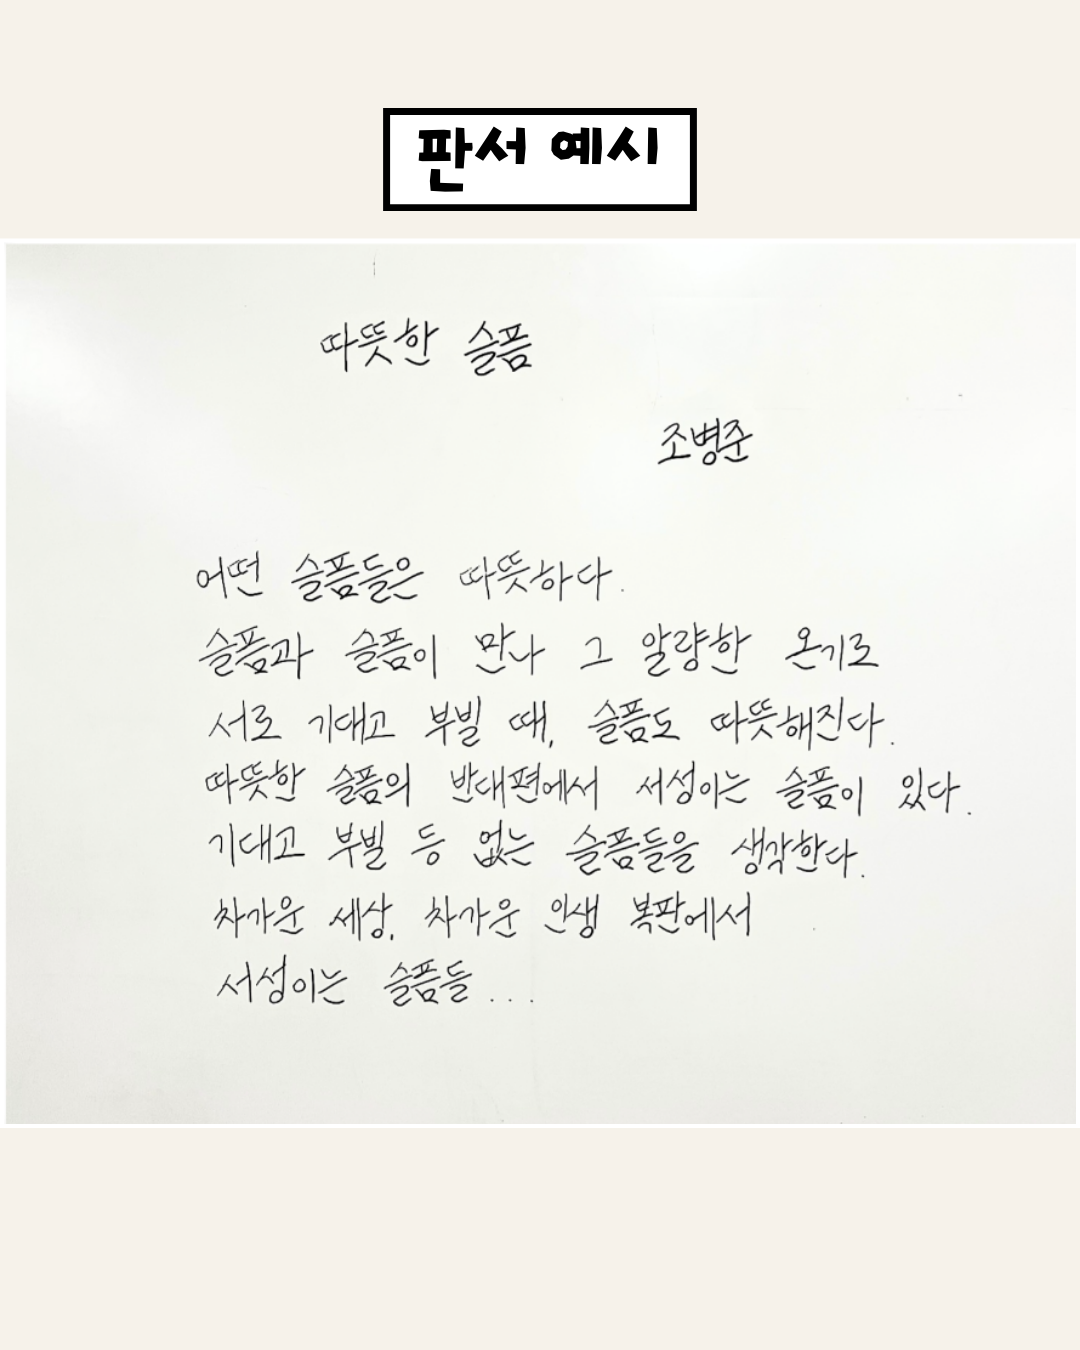 판서 예시
따뜻한 슬픔
조병준
어떤 슬픔들은 따뜻하다.
슬픔과 슬픔이 만나 그 알량한 온기로
서로 기대고 부빌 때, 슬픔도 따뜻해진다.
따뜻한 슬픔의 반대편에서 서성이는 슬픔이 있다.
기대고 부빌 등 없는 슬픔들을 생각한다.
차가운 세상, 차가운 인생 복판에서
서성이는 슬픔들...